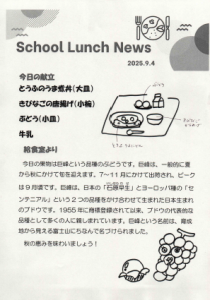 School Lunch News
2025.9.4
今日の献立
とうふのうま煮丼(大皿)
きびなごの唐揚げ(小椀)
ぶどう(小皿)
牛乳
給食室より
今日の果物は巨峰という品種のぶどうです。巨峰は、一般的に夏
から秋にかけて旬を迎えます。7〜11月にかけて出荷され、ピーク
は9月頃です。巨峰は、日本の「石原早生」とヨーロッパ種の「セ
ンテニアル」という2つの品種をかけ合わせて生まれた日本生まれ
のブドウです。1955年に商標登録されて以来、ブドウの代表的な品
種として多くの人に親しまれています。巨峰という名前は、育成
地から見える富士山にちなんで名づけられました。
秋の恵みを味わいましょう!